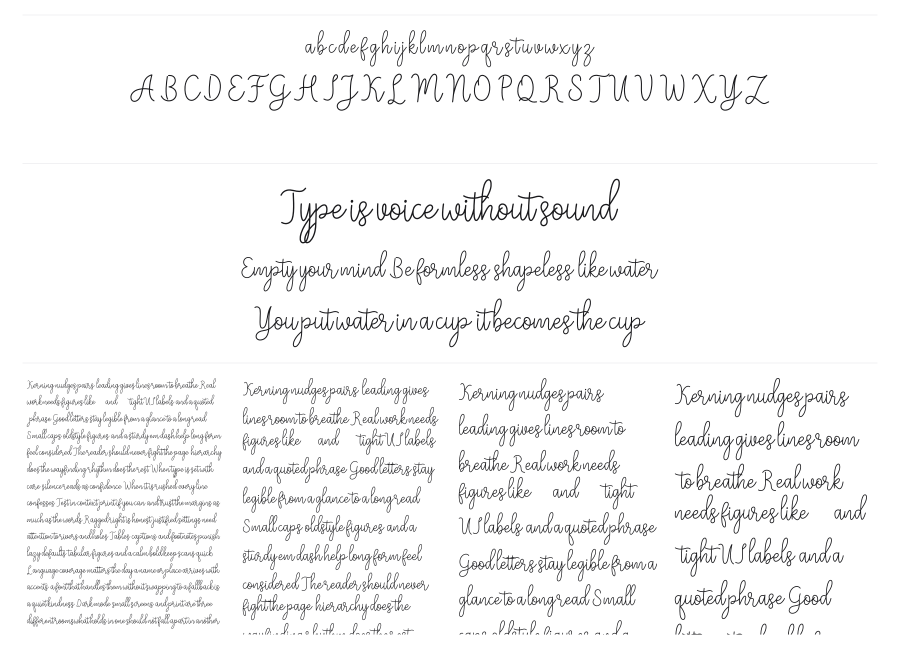 abcdefghijklmnopqrstuvwxyz
ABCDEFGHIJKLMNOPQRSTUVWXYZ
Type is voice without sound
Empty your mind Be formless shapeless like water
You put water in a cup it becomes the cup
Kerning nudges pairs leading gives lines room to breathe Real
work needs figures like and tight UI labels and a quoted
phrase Good letters stay legible from a glance to a long read
Small caps oldstyle figures and a sturdy em dash help long form
feel considered The reader should never fight the page hierarchy
does the wayfinding rhythm does the rest When type is set with
care silence reads as confidence When it is rushed every line
confesses Test in context print if you can and trust the margins as
much as the words Ragged right is honest justified settings need
attention to rivers and holes Tables captions and footnotes punish
lazy defaults tabular figures and a calm bold keep scans quick
Language coverage matters the day a name or place arrives with
accents a font that handles them without swapping to a fallback is
a quiet kindness Dark mode small screens and print are three
different rooms what holds in one should not fall apart in another
Kerning nudges pairs leading gives
lines room to breathe Real work needs
figures like and tight UI labels
and a quoted phrase Good letters stay
legible from a glance to a long read
Small caps oldstyle figures and a
sturdy em dash help long form feel
considered The reader should never
fight the page hierarchy does the
Kerning nudges pairs
leading gives lines room to
breathe Real work needs
figures like and tight
UI labels and a quoted phrase
Good letters stay legible from a
glance to a long read Small
Kerning nudges pairs
leading gives lines room
to breathe Real work
needs figures like and
tight UI labels and a
quoted phrase Good